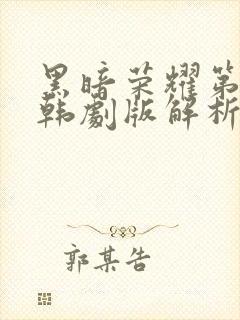 黑暗荣耀第
韩剧版解析
郭某告